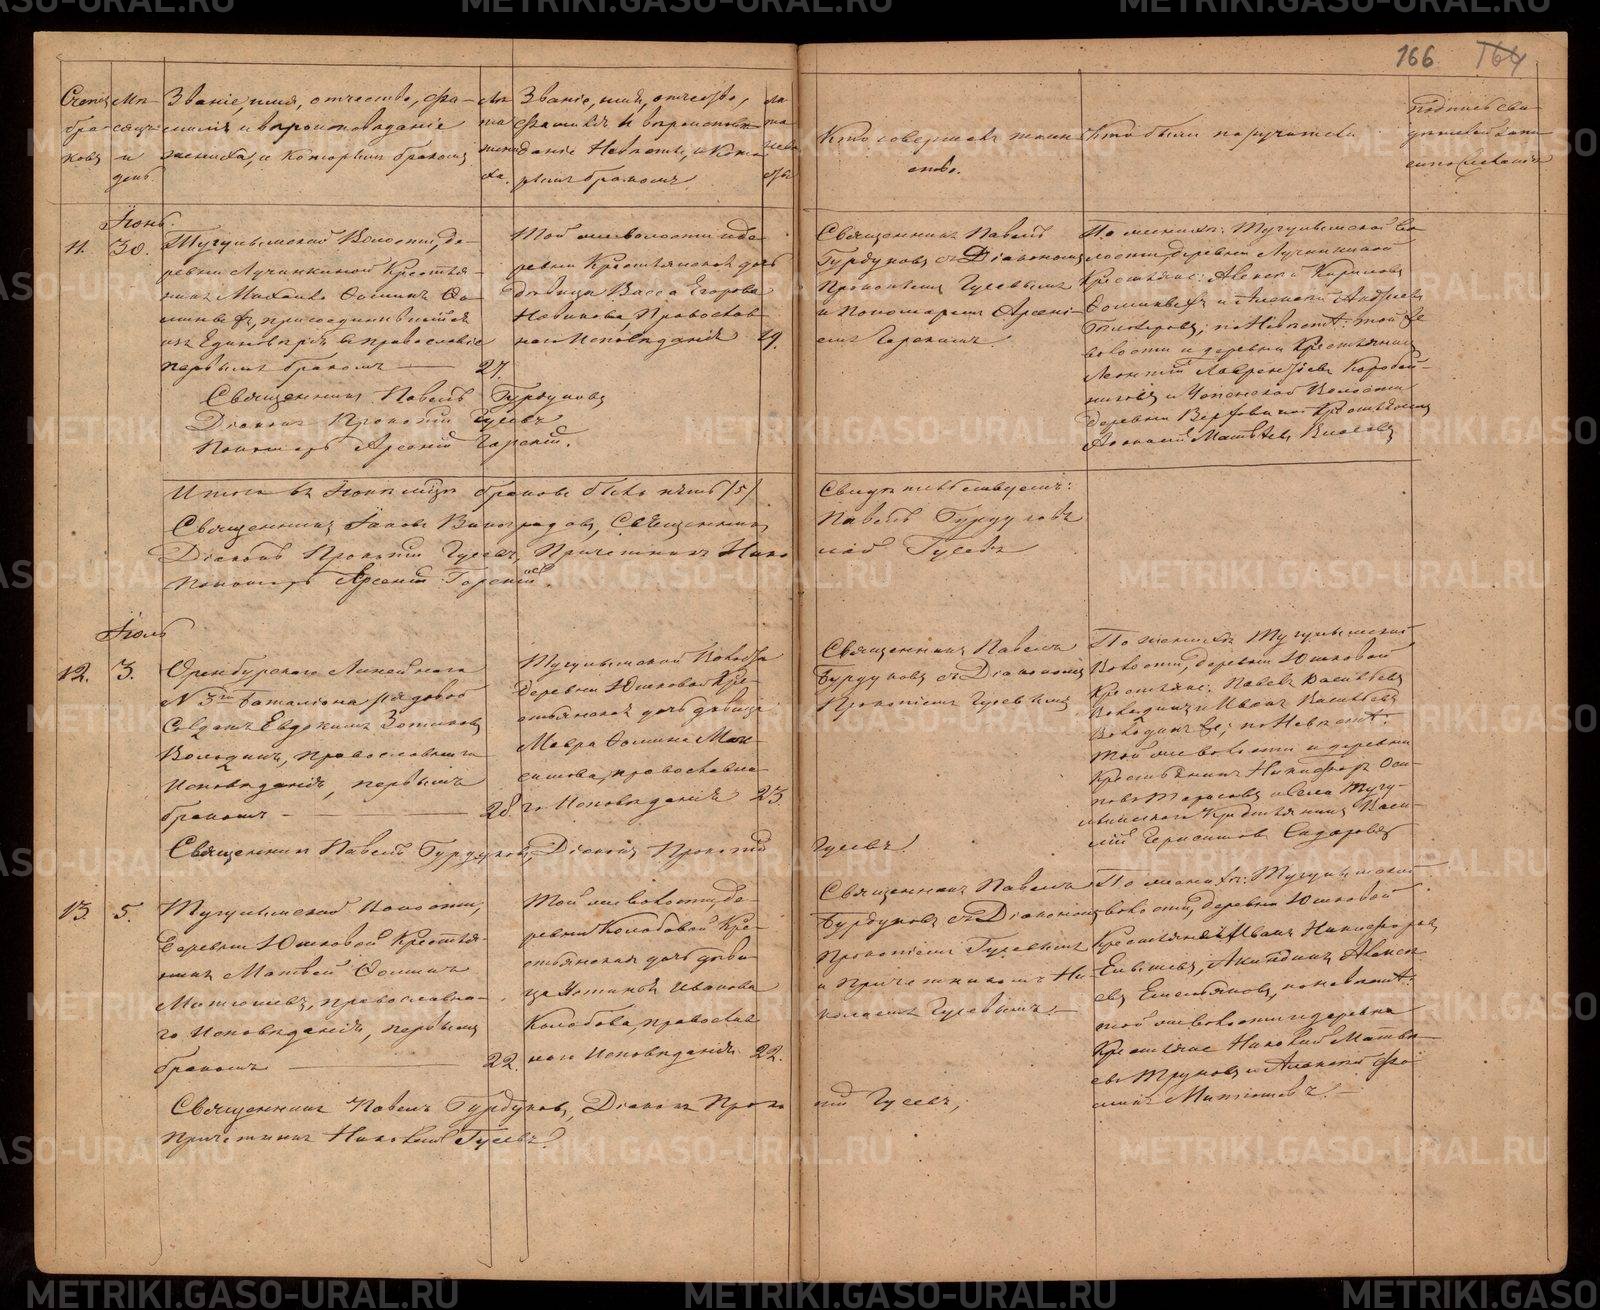 166 164
Счетъ браковъ
Мѣсяцъ и день
Званіе, имя, отчество, фамилія и вѣроисповѣданіе
жениха, и которымъ бракомъ
Лѣта жениха.
Званіе, имя, отчество,
фамилія и вѣроисповѣданіе
Невѣсты, и которымъ бракомъ.
Лѣта невѣсты
Кто совершалъ таинство.
Кто были поручители
Іюнь
11. 30.
Тугулымской Волости, деревни
Лучинкиной Крестьянинъ
Михаилъ Ѳоминъ
присоединившійся
изъ Единовѣрія въ православіе
первымъ бракомъ — 27.
Той же волости и деревни
Крестьянская дочь
дѣвица Васса Егорова
Новикова, Православнаго
Исповѣданія 19.
Священникъ Павелъ
Бурдуковъ съ Діакономъ
Прокопіемъ Гусевымъ
и Пономаремъ Арсеніемъ
Горскимъ.
По женихѣ: Тугулымской волости
деревни Лучинкиной
Крестьяне: Алексѣй
и Алексѣй Андреевъ
по Невѣстѣ: той же
волости и деревни Крестьянинъ
Леонтій Лаврентьевъ
волости
деревни Крестьянинъ
Матвѣевъ
Священникъ Павелъ Бурдуковъ
Діаконъ Прокопій Гусевъ
Пономарь Арсеній Горскій.
Итого въ Іюнѣ мѣсяцѣ браковъ было пять /5/
Священникъ Іаковъ Виноградовъ, Священникъ Павелъ Бурдуковъ
Діаконъ Прокопій Гусевъ, Причетникъ Николай Гусевъ
Пономарь Арсеній Горскій.
Свидѣтельствуемъ:
Іюль
12. 3.
Оренбургскаго Линейнаго
№ 3го баталіона рядовой
Солдатъ Евдокимъ Зотиковъ
Володинъ, православнаго
Исповѣданія, первымъ
бракомъ — 28.
Тугулымской Волости
деревни Юшковой Крестьянская
дочь дѣвица
Мавра Ѳомина
православнаго
Исповѣданія 23.
Священникъ Павелъ
Бурдуковъ съ Діакономъ
Прокопіемъ Гусевымъ
По женихѣ Тугулымской
Волости, деревни Юшковой
Крестьяне: Павелъ Васильевъ
Володинъ и Иванъ Васильевъ
Володинъ же; по Невѣстѣ:
той же волости и деревни
Крестьянинъ Никифоръ Осиповъ
Тарасовъ и села Тугулымскаго
Крестьянинъ Василій
Сидоровъ
Священникъ Павелъ Бурдуковъ, Діаконъ Прокопій Гусевъ.
13. 5.
Тугулымской Волости,
деревни Юшковой Крестьянинъ
Матвѣй Ѳоминъ
Митюшевъ, православнаго
Исповѣданія, первымъ
бракомъ — 22.
Той же волости, деревни
Колобовой Крестьянская
дочь дѣвица
Устинья Иванова
Колобова, православнаго
Исповѣданія 22.
Священникъ Павелъ
Бурдуковъ съ Діакономъ
Прокопіемъ Гусевымъ
и Причетникомъ Николаемъ
Гусевымъ. —
По женихѣ: Тугулымской
волости, деревни Юшковой
Крестьяне: Иванъ Никифоровъ
Акиндинъ Алексѣевъ
Емельяновъ, по невѣстѣ:
той же волости и деревни
Крестьяне Николай Матвѣевъ
Труновъ и Алексѣй
Митюшевъ. —
Священникъ Павелъ Бурдуковъ, Діаконъ Прокопій Гусевъ,
Причетникъ Николай Гусевъ.
METRIKI.GASO-URAL.RU